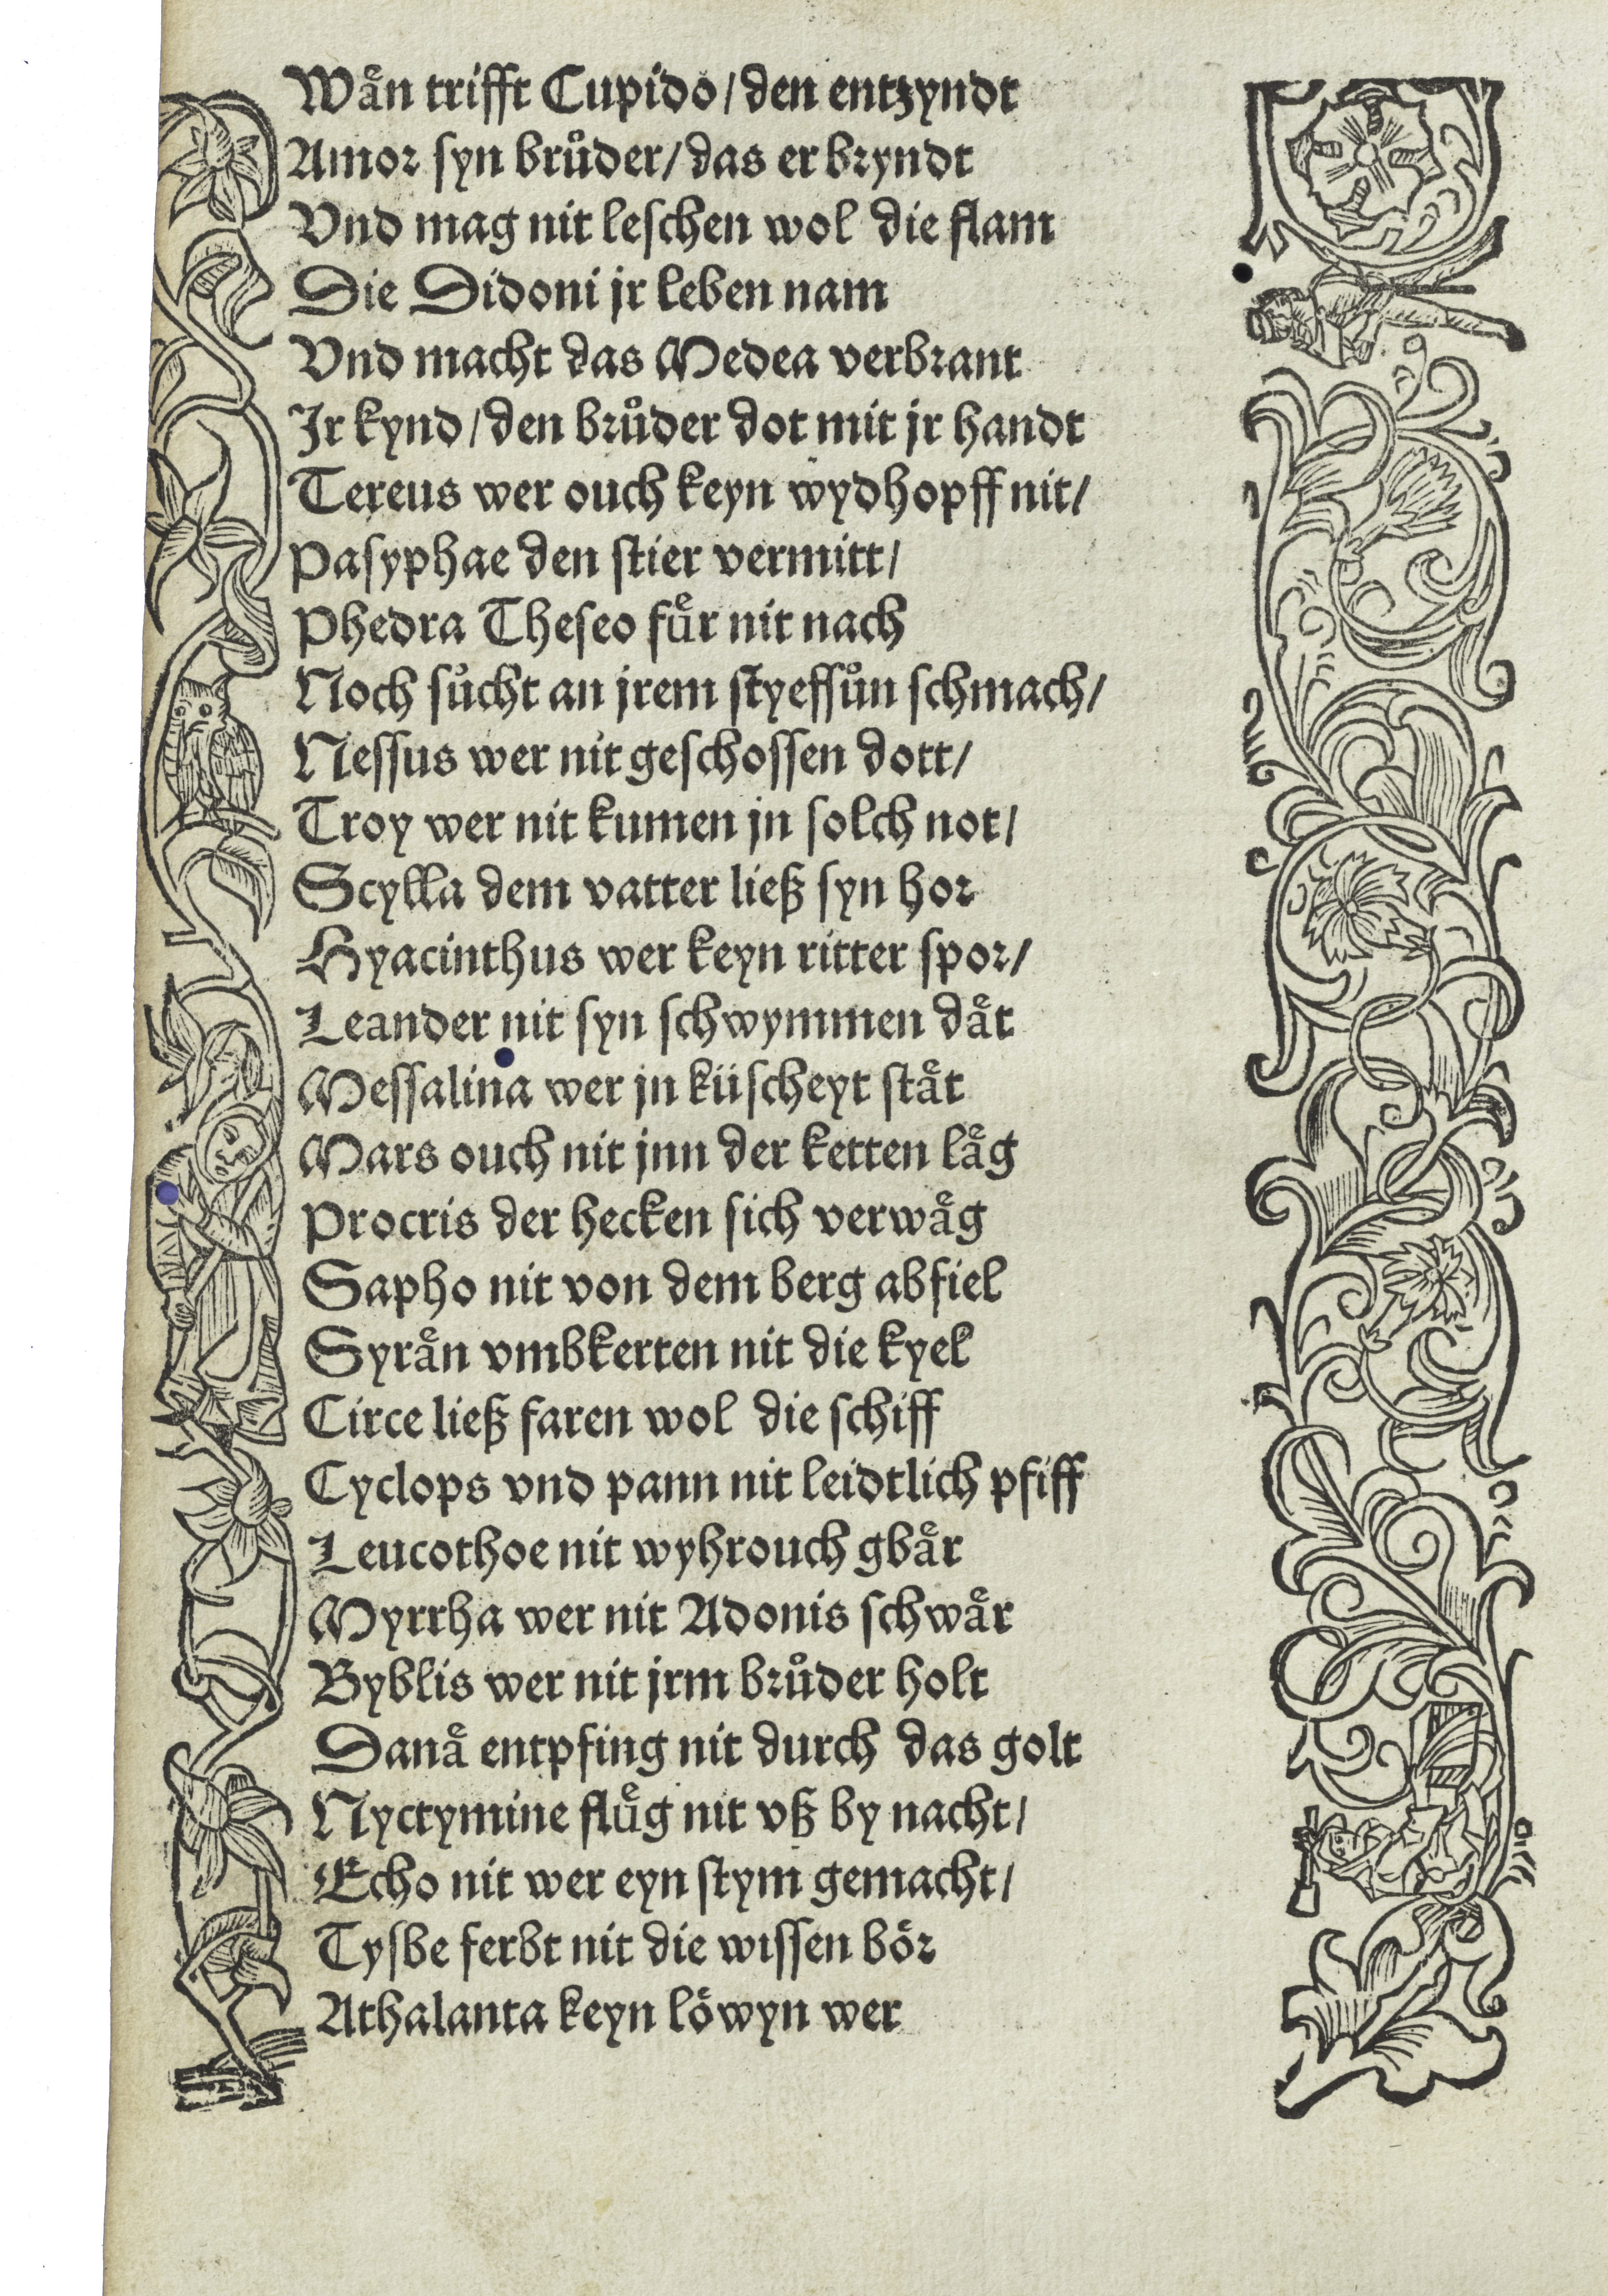 Waͤn trifft Cupido / den entzyndt
Amor ſyn bruͦder / das er bryndt
Vnd mag nit leſchen wol die flam
Die Didoni jr leben nam
Vnd macht das Medea verbrant
Jr kynd / den bruͦder dot mit jr handt
Tereus wer ouch keyn wydhopff nit /
Paſyphae den ſtier vermitt /
Phedra Theſeo fuͤr nit nach
Noch ſuͦcht an jrem ſtyefſuͦn ſchmach /
Neſſus wer nit geſchoſſen dott /
Troy wer nit kumen jn ſolch not /
Scylla dem vatter ließ ſyn hor
Hyacinthus wer keyn ritter ſpor /
Leander nit ſyn ſchwymmen daͤt
Meſſalina wer jn küſcheyt ſtaͤt
Mars ouch nit jnn der ketten laͤg
Procris der hecken ſich verwaͤg
Sapho nit von dem berg abfiel
Syraͤn vmbkerten nit die kyel
Circe ließ faren wol die ſchiff
Cyclops vnd pann nit leidtlich pfiff
Leucothoe nit wyhrouch gbaͤr
Myrrha wer nit Adonis ſchwaͤr
Byblis wer nit jrm bruͦder holt
Danaͤ entpfing nit durch das golt
Nyctymine fluͤg nit vß by nacht /
Echo nit wer eyn ſtym gemacht /
Tyſbe ferbt nit die wiſſen boͤr
Athalanta keyn loͤwyn wer